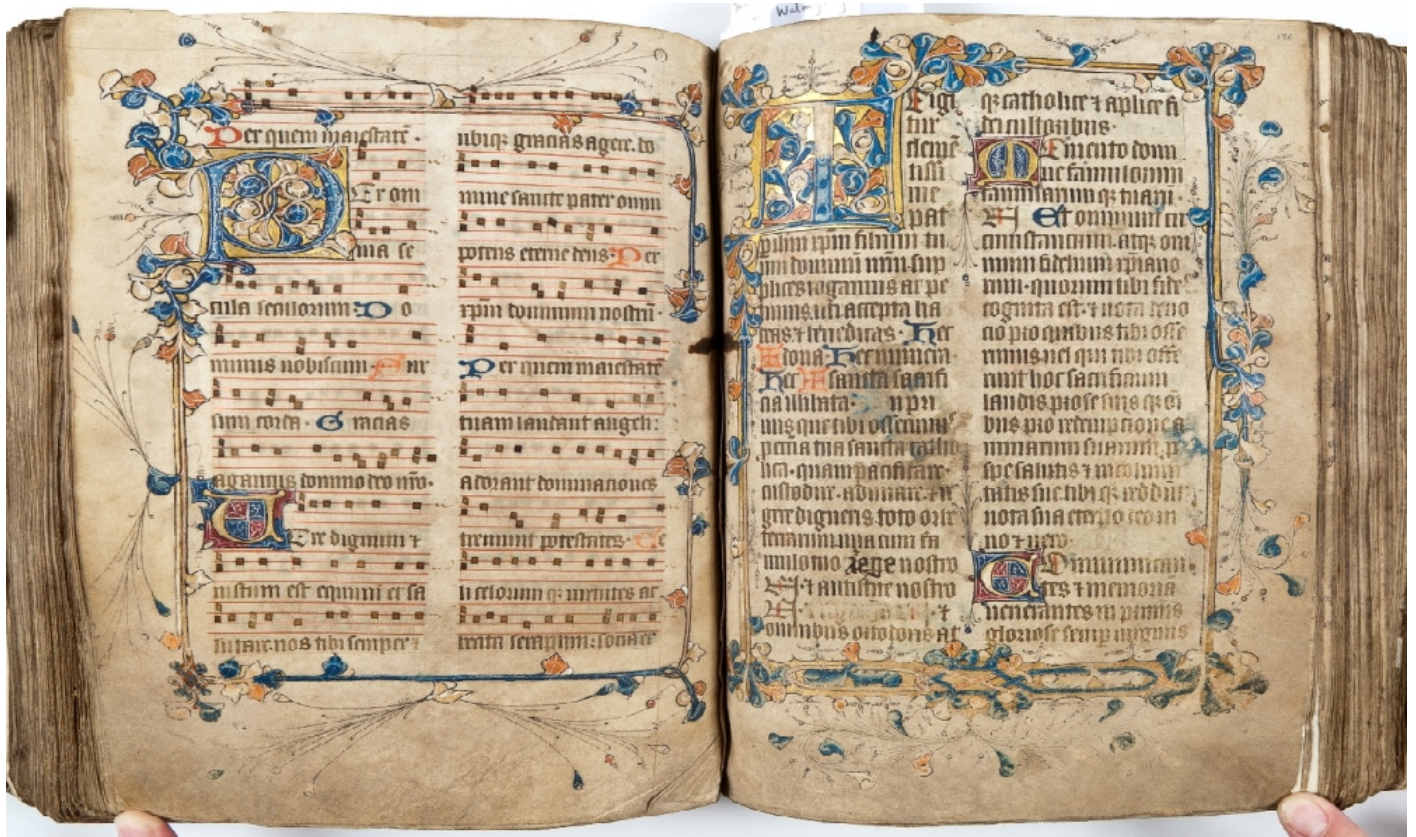 Per quem maiestatē ·
Per om
nia se
cula seculorum Do
minus uobiscum Sur
sum corda · Gracias
agamus domino deo nr̄o ·
Uere dignum ⁊
iustum est equum et sa
lutare nos tibi semper ⁊
ubiqꝫ gracias agere. do
mine sancte pater omni
potens eterne deus · Per
xp̄m dominum nostrū ·
Per quem maiestatē
tuam laudant angeli :
adorant dominaciones
tremunt potestates · Ce
li celorum qꝫ uirtutes ac
beata seraphin : socia et
Te igi
tur
clemē
tissi
me
pat
p ihm xp̄m filium tu
um dominū nr̄m sup
plices rogamus ac pe
timus. uti accepta ha
beas ⁊ benedicas · Hec
dona Hec munera
Hec sancta sacrifi
cia illibata · n pri
mis que tibi offerimꝰ
ecclesia tua sancta catho
lica · quam pacificare
custodire · adunare · ⁊ re
gere digneris toto orbe
terrarum · una cum fa
mulo tuo rege nostro
N · ⁊ antistite nostro
omnibus ortodoxis at
qꝫ catholice ⁊ aplice fi
dei cultoribus ·
Memento domi
ne famulorum
famularum qꝫ tuarū
N Et omnium cir
cumstancium · atqꝫ om
nium fidelium xp̄iano
rum · quorum tibi fides
cognita est · ⁊ nota deuo
cio pro quibus tibi offe
rimus uel qui tibi offe
runt hoc sacrificium
laudis pro se suis qꝫ oī
bus pro redempcione a
nimarum suarum · p
spe salutis ⁊ incolumi
tatis sue tibi qꝫ reddūt
uota sua eterno deo ui
uo ⁊ uero ·
Communican
tes ⁊ memoriā
uenerantes in primis
gloriose semp uirginis